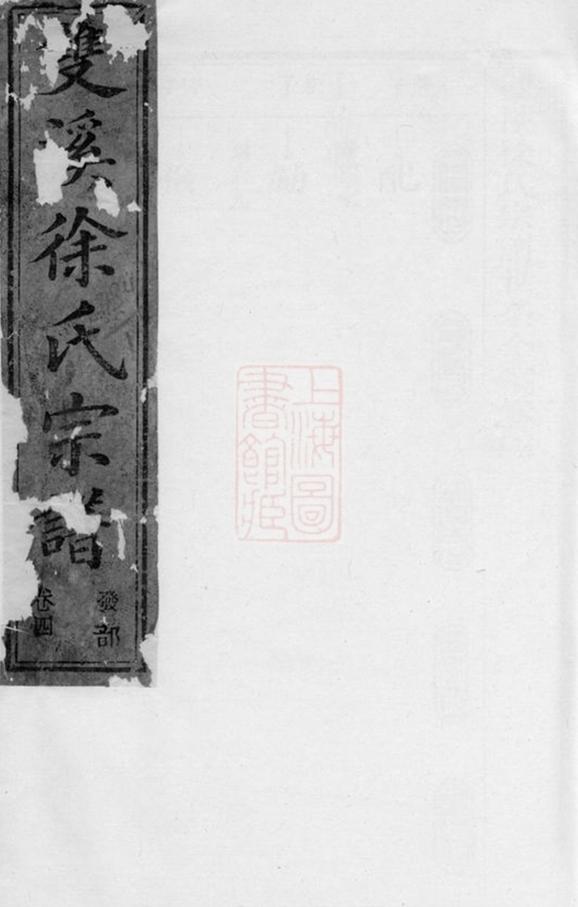 雙溪徐氏宗譜
發部
卷四
上海圖
書館藏